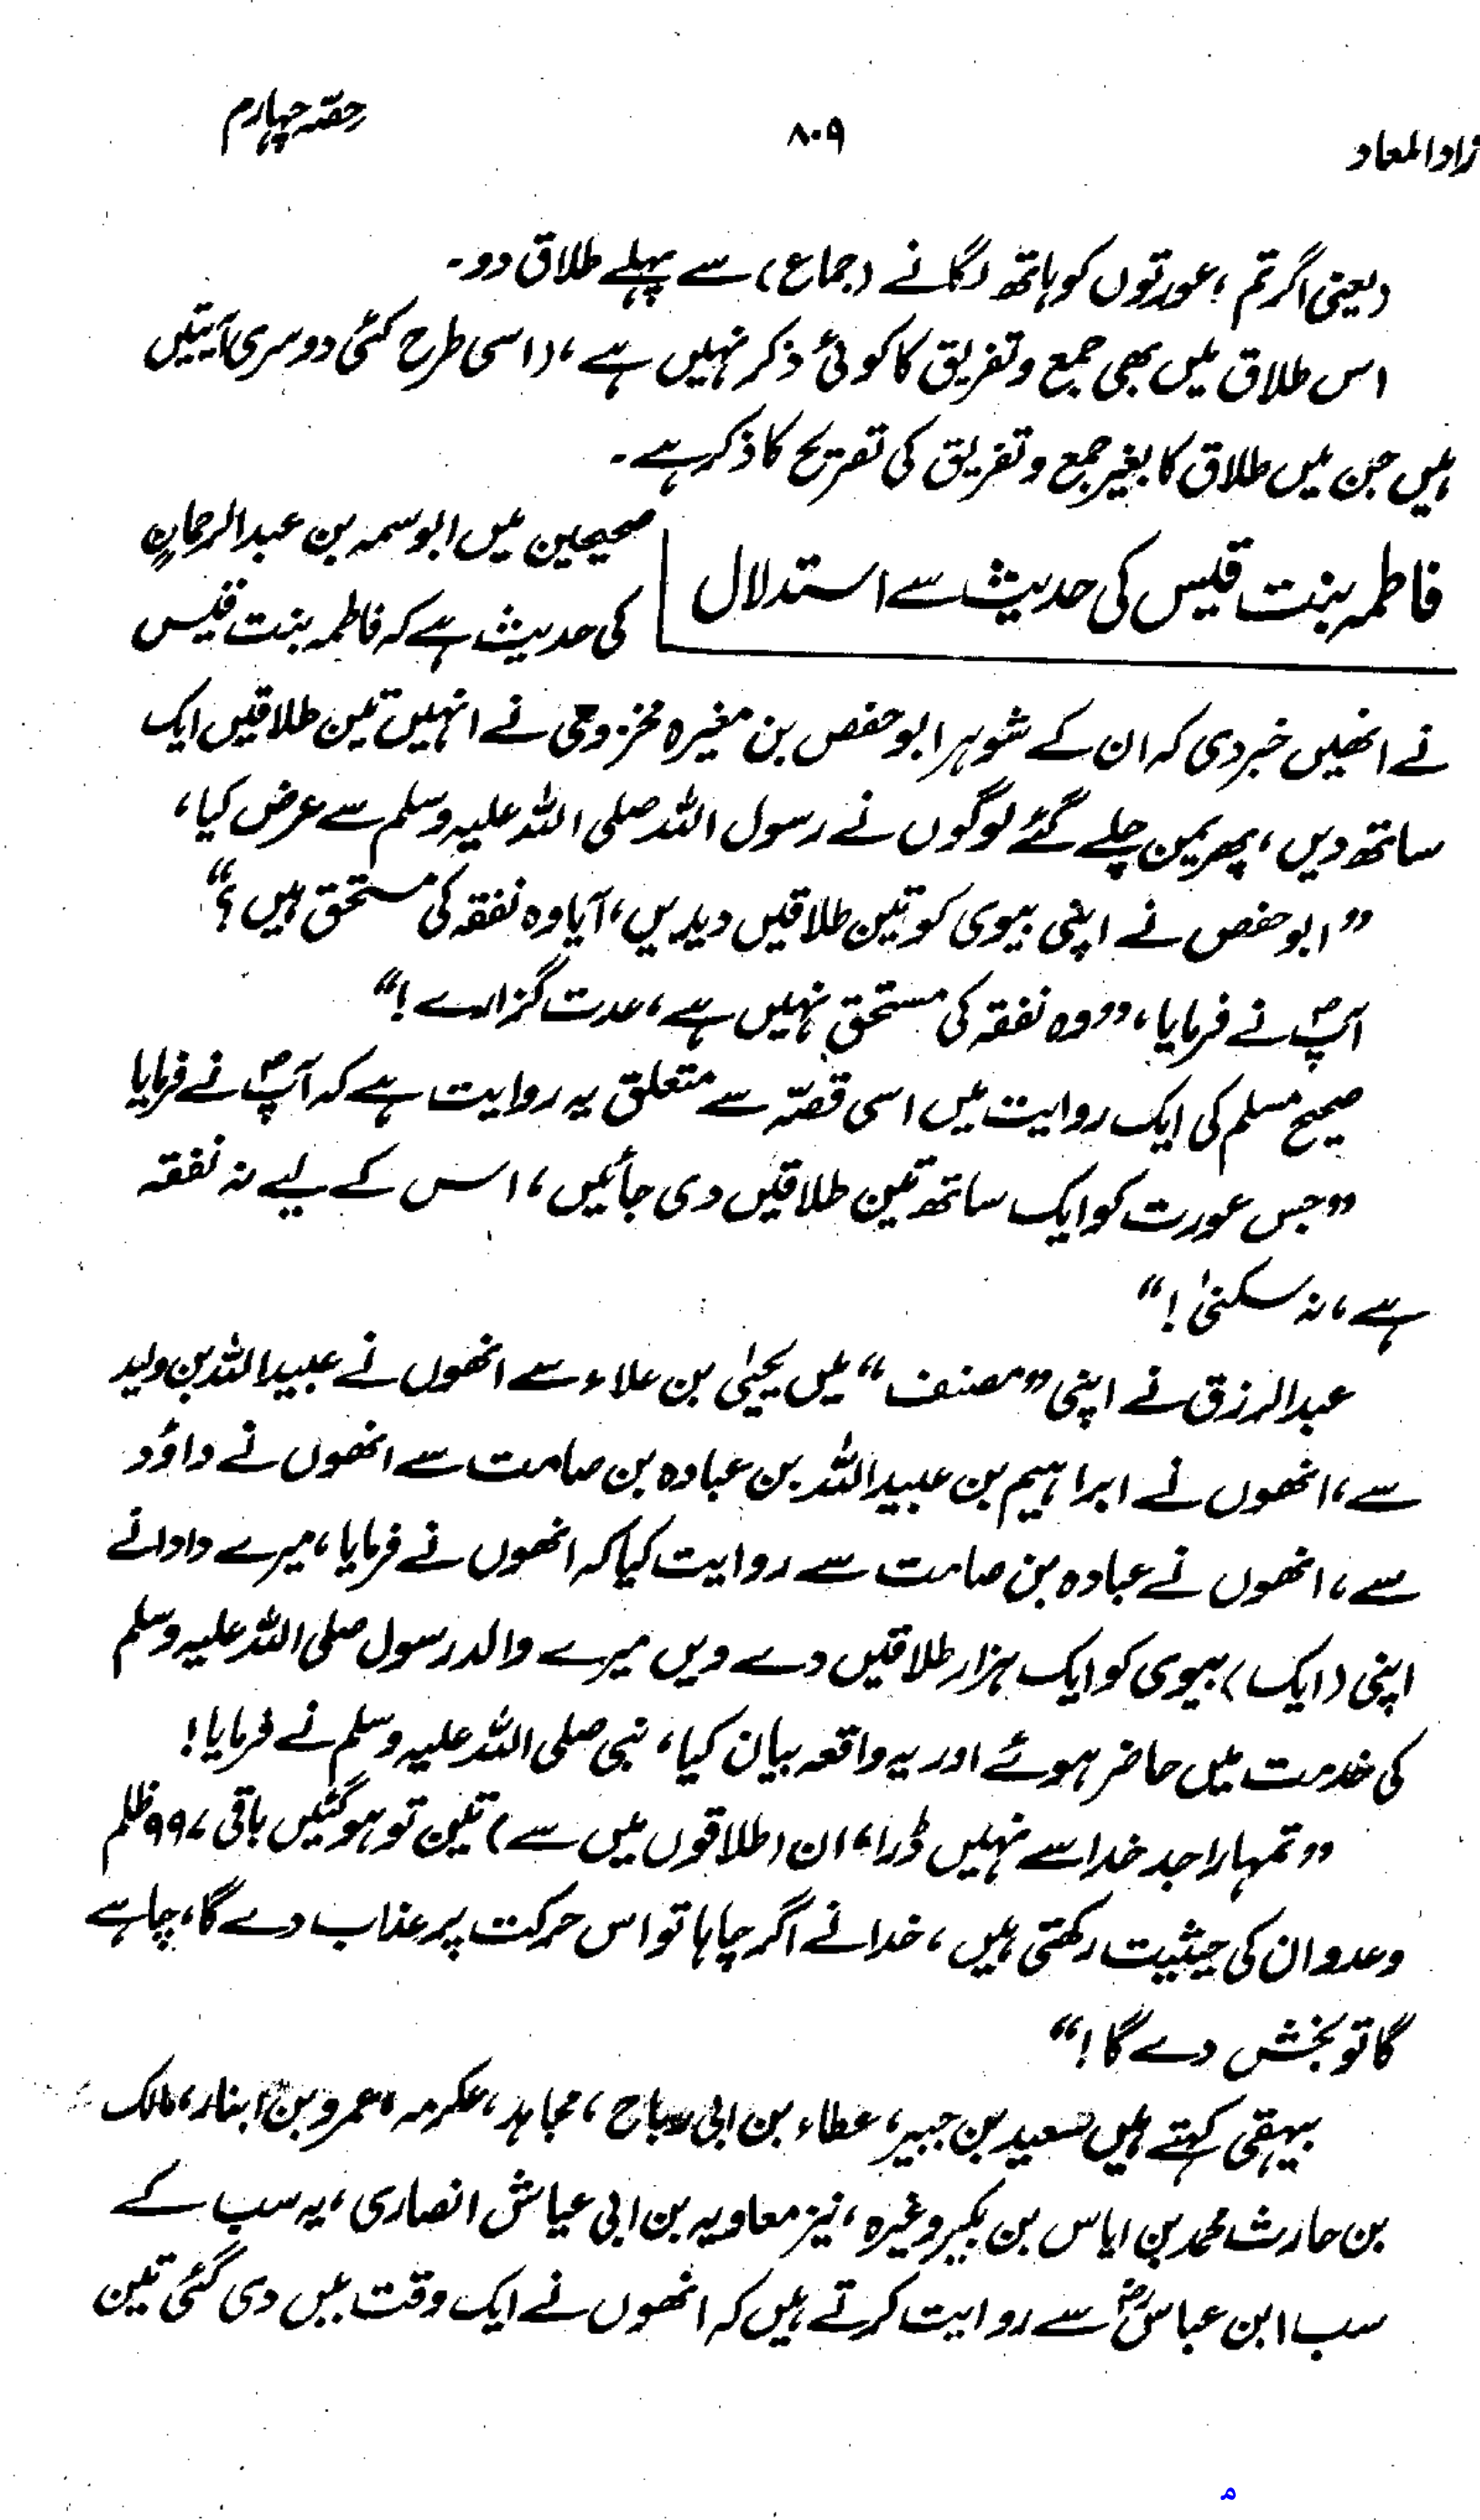 زاد المعاد
۸۰۹
حصّہ چہارم
(یعنی اگر تم، عورتوں کو ہاتھ لگانے (جماع) سے پہلے طلاق دو۔
اس طلاق میں بھی جمع و تفریق کا کوئی ذکر نہیں ہے، (اسی طرح کئی دوسری آیتیں
ہیں جن میں طلاق کا بغیر جمع و تفریق کی تصریح کا ذکر ہے۔
فاطمہ بنت قیس کی حدیث سے استدلال
صحیحین میں ابوسمہ بن عبدالرحمان
کی حدیث ہے کہ فاطمہ بنت قیس
نے انھیں خبر دی کہ ان کے شوہر ابوحفص بن مغیرہ مخزومی نے انہیں تین طلاقیں ایک
ساتھ دیں، پھر یمن چلے گئے لوگوں نے رسول اللہ صلی اللہ علیہ وسلم سے عرض کیا،
”ابوحفص نے اپنی بیوی کو تین طلاقیں دیدیں، آیا وہ نفقہ کی مستحق ہیں؟“
آپؐ نے فرمایا، ”وہ نفقہ کی مستحق نہیں ہے، عدت گزارے!“
صحیح مسلم کی ایک روایت میں اسی قصّہ سے متعلق یہ روایت ہے کہ آپؐ نے فرمایا
”جس عورت کو ایک ساتھ تین طلاقیں دی جائیں، اس کے لیے نہ نفقہ
ہے، نہ سکنیٰ!“
عبدالرزق نے اپنی ”مصنف“ میں یحییٰ بن علاء سے انھوں نے عبیداللہ بن ولید
سے، انھوں نے ابراہیم بن عبیداللہ بن عبادہ بن صامت سے انھوں نے داؤد
سے، انھوں نے عبادہ بن صامت سے روایت کیا کہ انھوں نے فرمایا، میرے دادا نے
اپنی (ایک) بیوی کو ایک ہزار طلاقیں دے دیں میرے والد رسول صلی اللہ علیہ وسلم
کی خدمت میں حاضر ہوئے اور یہ واقعہ بیان کیا، نبی صلی اللہ علیہ وسلم نے فرمایا!
”تمہارا جد خدا سے نہیں ڈرا، ان (طلاقوں میں سے) تین تو ہوگئیں باقی ۹۹۷ ظلم
وعدوان کی حیثیت رکھتی ہیں، خدا نے اگر چاہا تو اس حرکت پر عذاب دے گا، چاہے
گا تو بخش دے گا!“
بیہقی کہتے ہیں سعید بن جبیر، عطاء بن ابی رباح، مجاہد، عکرمہ، عمرو بن ابنار، مالک
بن حارث محمد بن ایاس بن بکیر وغیرہ، نیز معاویہ بن ابی عیاش انصاری، یہ سب کے
سب ابن عباسؓ سے روایت کرتے ہیں کہ انھوں نے ایک وقت میں دی گئی تین
م